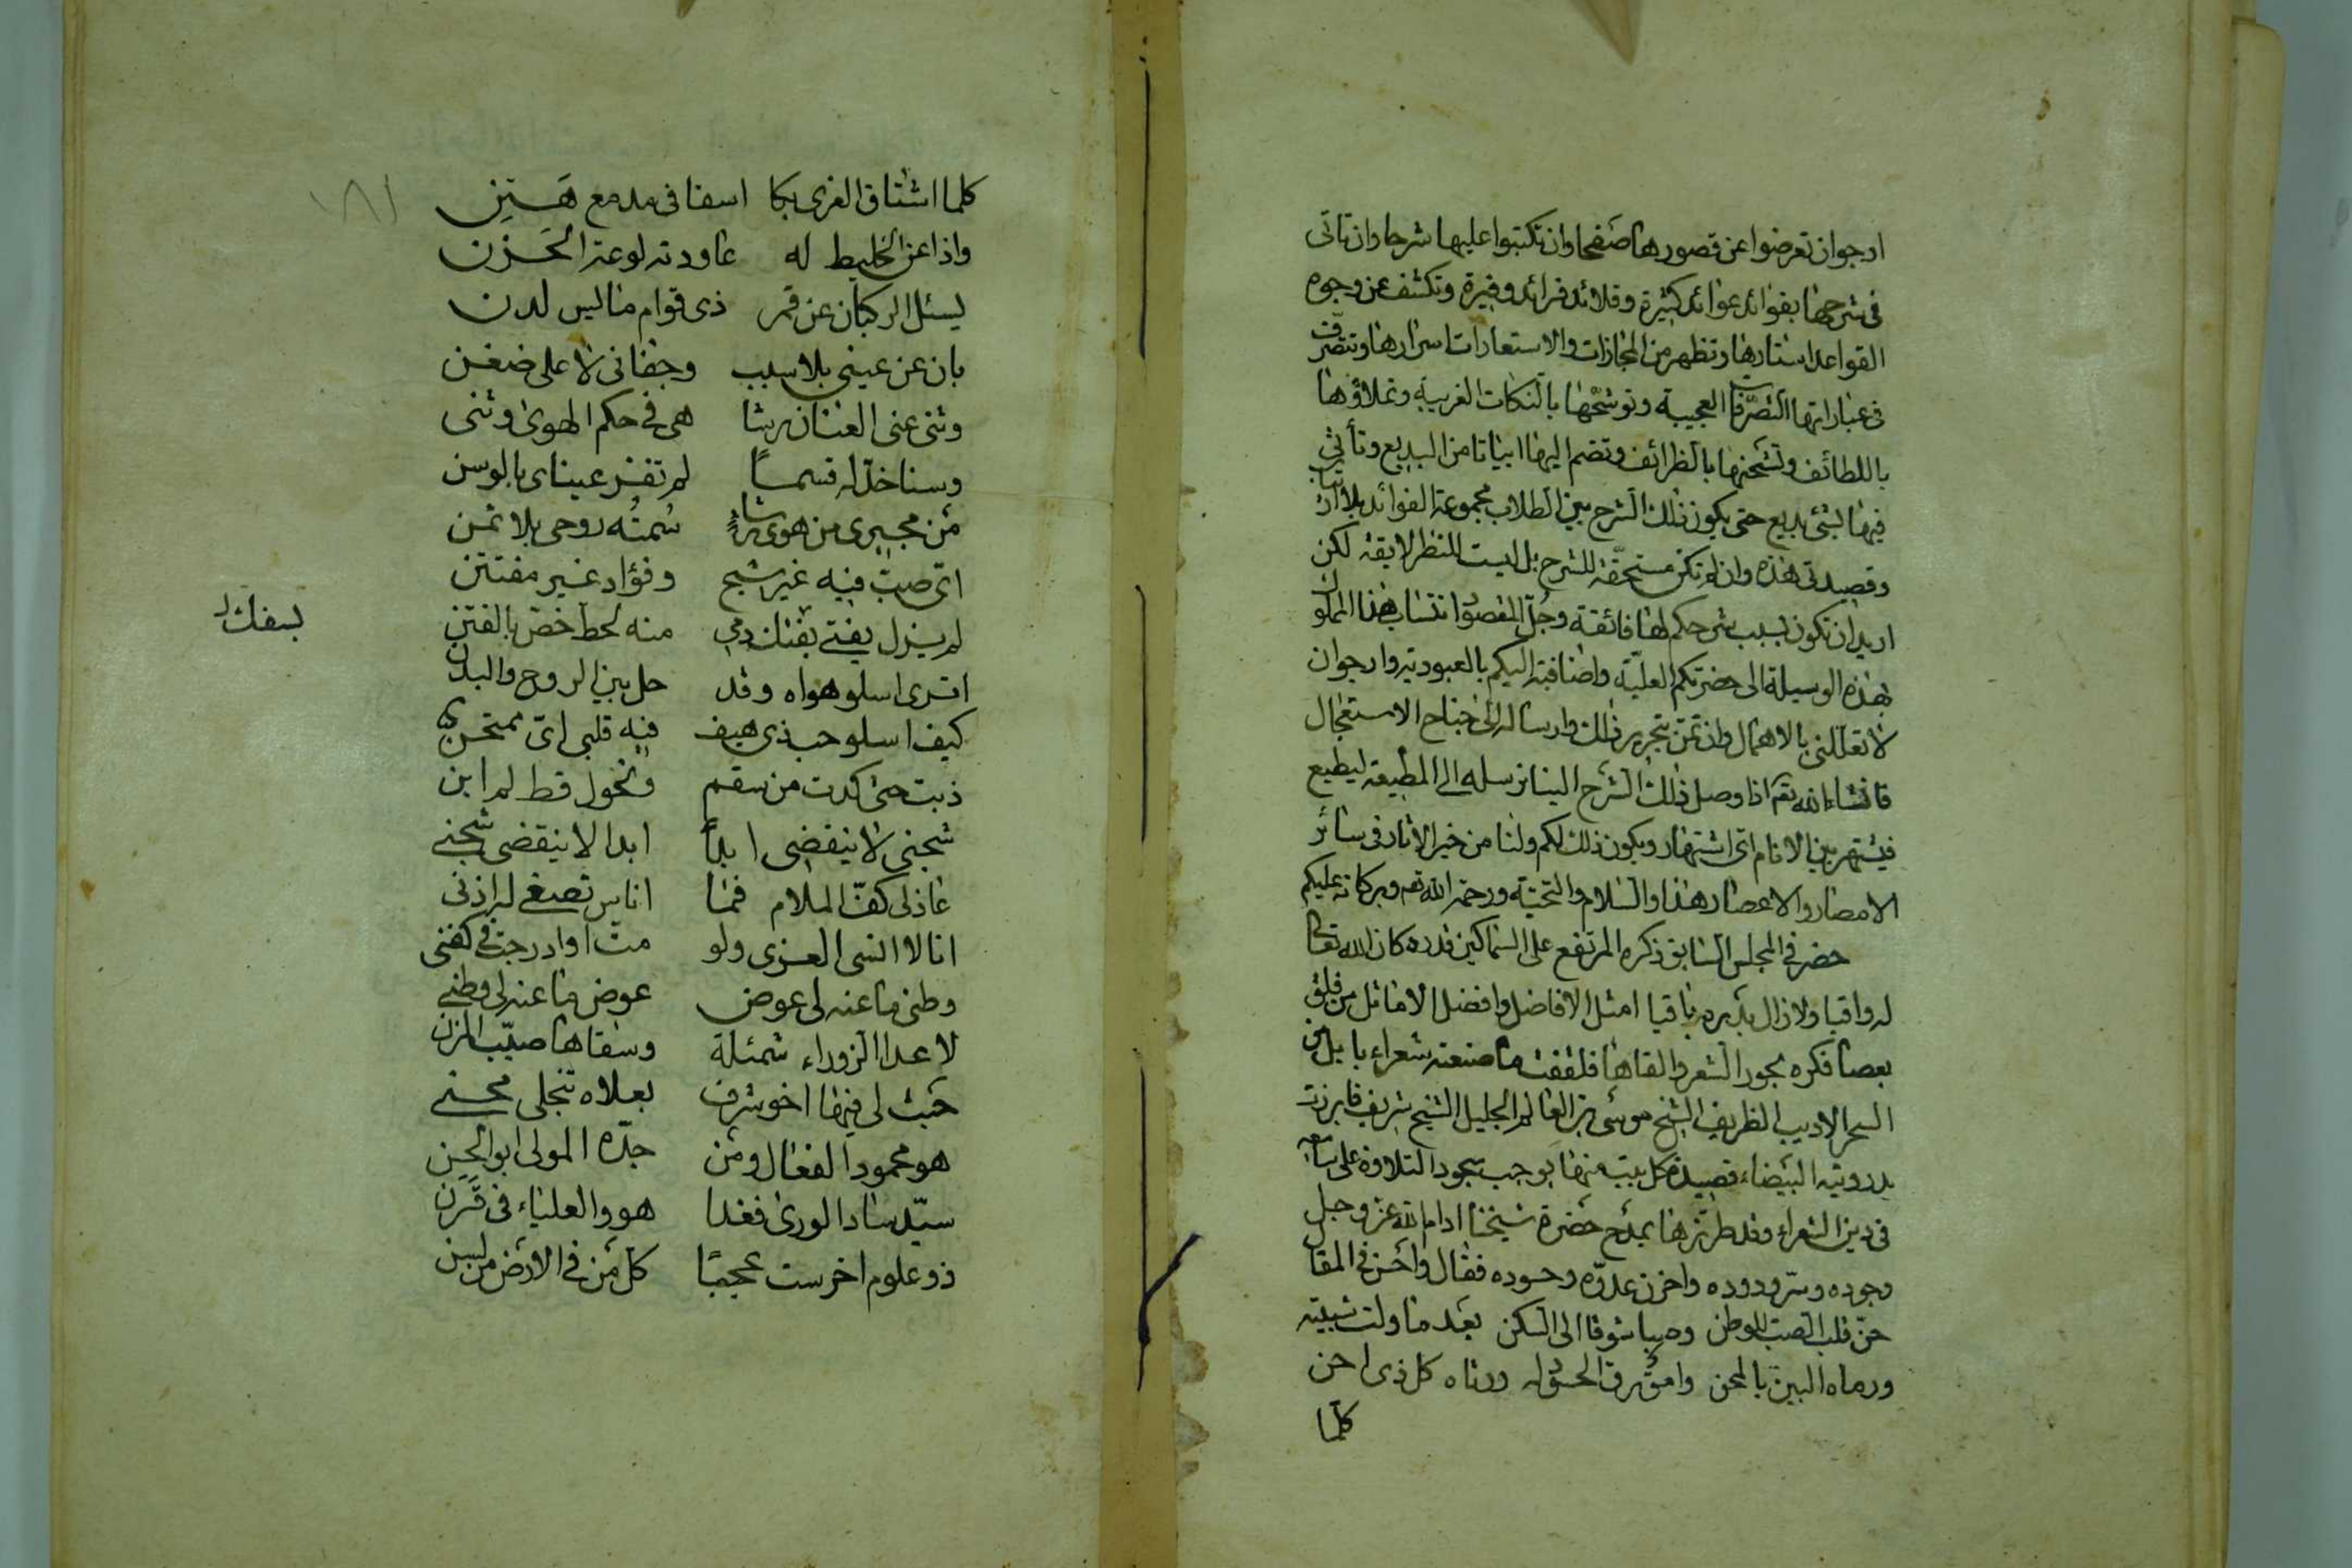 ارجوان تعرضوا عن قصورها صفحا وان تكتبوا عليها شرحا وان تاتى
فى شرحها بفوائد عوائد كثيرة وقلائد فرائد وفيرة وتكشف عن وجوه
القواعد استارها وتظهر من المجازات والاستعارات اسرارها وتتصرّف
فى عباراتها التصرّفات العجيبة وتوشّحها بالنكات الغريبة وتملاؤها
باللطائف وتشحنها بالظرائف وتضم اليها ابياتا من البديع وتأتى
فيها بشئ بديع حتى يكون ذلك الشرح بين الطلاب مجموعة الفوائد بلا ارتياب
وقصيدتى هذه وان لم تكن مستحقّة للشرح بل ليست للنظر لايقة لكن
اريد ان تكون بسبب شرحكم لها فائقة وجُلّ المقصود انتساب هذا المملوك
بهذه الوسيلة الى حضرتكم العليّة واضافته اليكم بالعبودية وارجوان
لا تعلّلنى بالاهمال وان تمنّ بتحرير ذلك وارساله الىّ جناح الاستعجال
فانشاء الله تعم اذا وصل ذلك الشرح الينا نرسله الى المطبعة ليطبع
فيشتهر بين الانام اىّ اشتهار ويكون ذلك لكم ولنا من خير الاثار فى سائر
الامصار والاعصار هذا والسلام والتحيّة ورحمة الله تعم وبركاته عليكم
حضر فى المجلس السابق ذكره المرتفع على السماكين قدره كان الله تعالى
له واقيا ولا زال بدّبره باقيا امثل الافاضل وافضل الاماثل من فلق
بعصا فكره بحور الشعر والقاها فلقفت ما صنعته شعراء بابل من
السحر الاديب الظريف الشيخ موسى بن العالم الجليل الشيخ شريف فابرزت
يد رويته البيضاء قصيدة كل بيت منها يوجب سجود التلاوة على سامعه
فى دين الشعراء وقد طرّزها بمدح حضرة شيخنا ادام الله عز وجل
وجوده وسرّ ودوده واحزن عدوّه وحسوده فقال واحسن فى المقال
حنّ قلب الصبّ للوطن وصبا شوقا الى السكن بعد ما ولت شبيبته
ورماه البين بالمحن وامرّ الحسّو له ورثاه كل ذى احن
كلّما
١٨١
كلما اشتاق الغرى بكا اسفا فى مدمع هَتِنِ
واذا عنّ الخليط له عاودته لوعة الحَزَن
يسئل الركبان عن قمر ذى قوام مائس لدن
بان عن عينى بلا سبب وجفانى لا على ضغن
وثنى عنى العنان رشا همى فى حكم الهوى وثنى
وسنا خدّ له قسمًا لم تفز عيناى بالوسن
مَن مجيرى من هوى رشاءٍ سُمتُه روحى بلا ثمن
اىّ صبّ فيه غير شبج وفؤاد غير مفتتن
لم يزل يفتى بقتك دمى منه لحظ خصّ بالفتن
بسفك
اترى اسلو هواه وقد حل بين الروح والبدن
كيف اسلو حب ذى هيف فيه قلبى اىّ ممتحن
ذبت حتى كدت من سقم ونحول قط لم ابن
شجنى لا ينقضى ابدًا ابدا لا ينقضى شجنى
عاذلى كفّ الملام فما انا من تصغى له اذنى
انا لا انسى الغرى ولو متّ او ادرجت فى كفنى
وطنى ما عنه لى عوض عوض ما عنه لى وطنى
لا عدا الزوراء شمئلة وسقاها صيّب المزن
حيث لى فيها اخو شرف بعلاه تنجلى محنى
هو محمود الفعال ومَن جدّه المولى ابو الحسن
سيّد ساد الورى فغدا هو والعلياء فى قَرَن
ذو علوم اخرست عجبًا كل مَن فى الارض من لسن